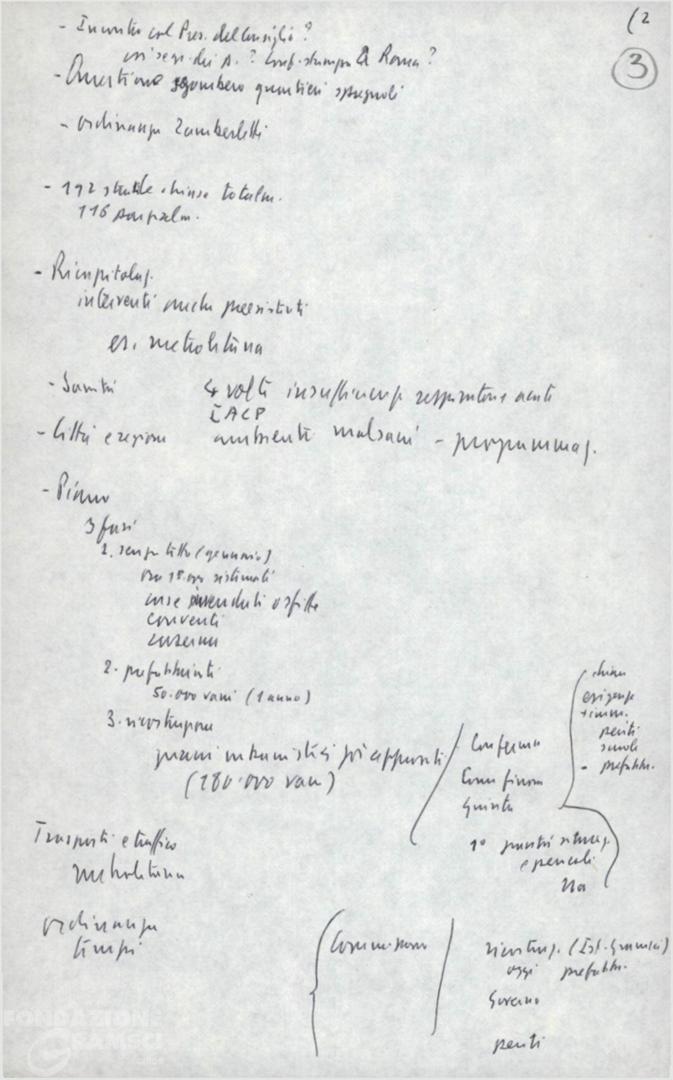 (2
3
- Incontro col Pres. del Consiglio?
coi segr. dei p.? Conf. stampa a Roma?
- Questione sgombero quartieri spagnoli
- ordinanza Zamberletti
- 192 strade chiuse totalm.
116 parzialm.
- Ricapitolaz.
interventi anche preesistenti
es. metrolitana
- Sanità 4 volte insufficienze respiratorie acute
IACP
- Città e regione ambienti malsani - programmaz.
- Piano
3 fasi
1. senza tetto (gennaio)
ora sistemati
case
conventi
caserme
2. prefabbricati
50.000 vani (1 anno)
3. ricostruzione
piani urbanistici già approvati
(180.000 vani)
Conferma
Giunta
chiese
esigenze
+ imm.
periti
scuole
- prefabbr.
1° situaz.
e pericoli
Na
Trasporti e traffico
metrolitana
ordinanza
tempi
Commissario
ricostruz. (Ist. Gramsci)
oggi prefabbr.
Governo
periti
FONDAZIONE
GRAMSCI